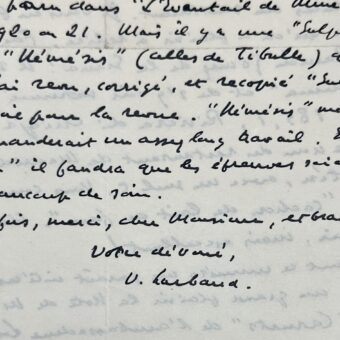 paru dans "L'Éventail de Mme
1920 ou 21. Mais il y a une "Sulp
"Némésis" (celles de Tibulle) q
ai revu, corrigé, et recopié "Su
pour la revue. "Némésis" me
manderait un assez long travail. E
" il faudra que les épreuves soi
aucoup de soin.
fois, merci, cher Monsieur, et
Votre dévoué,
V. Larbaud.